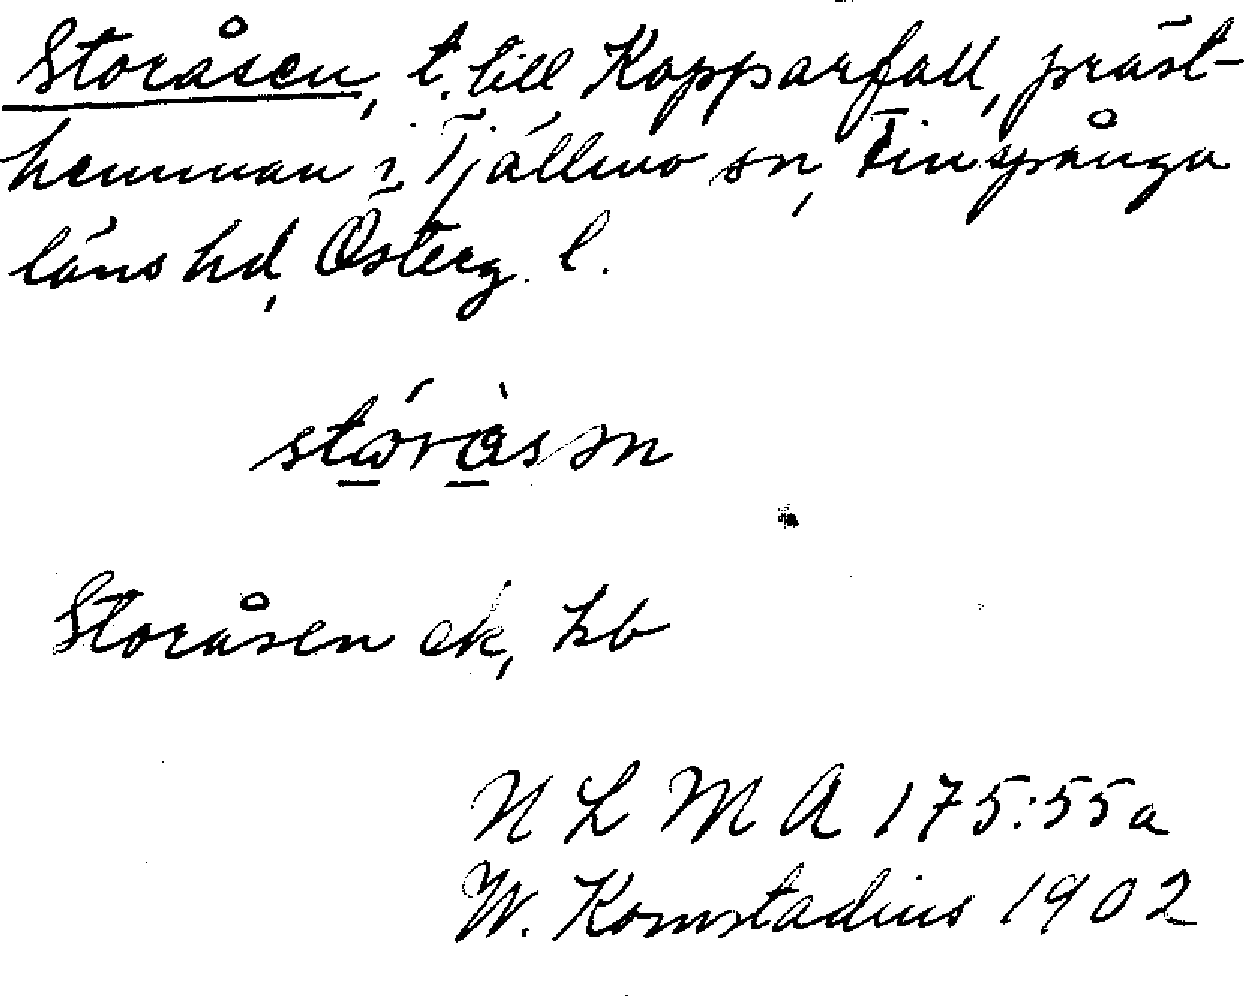 Storåsen, t. till Kopparfall, präst-
hemman i Tjällmo sn, Finspånga
läns hd, Österg. l.
Storåsen ek, hb
N L M A 175:55a
W. Komstadius 1902